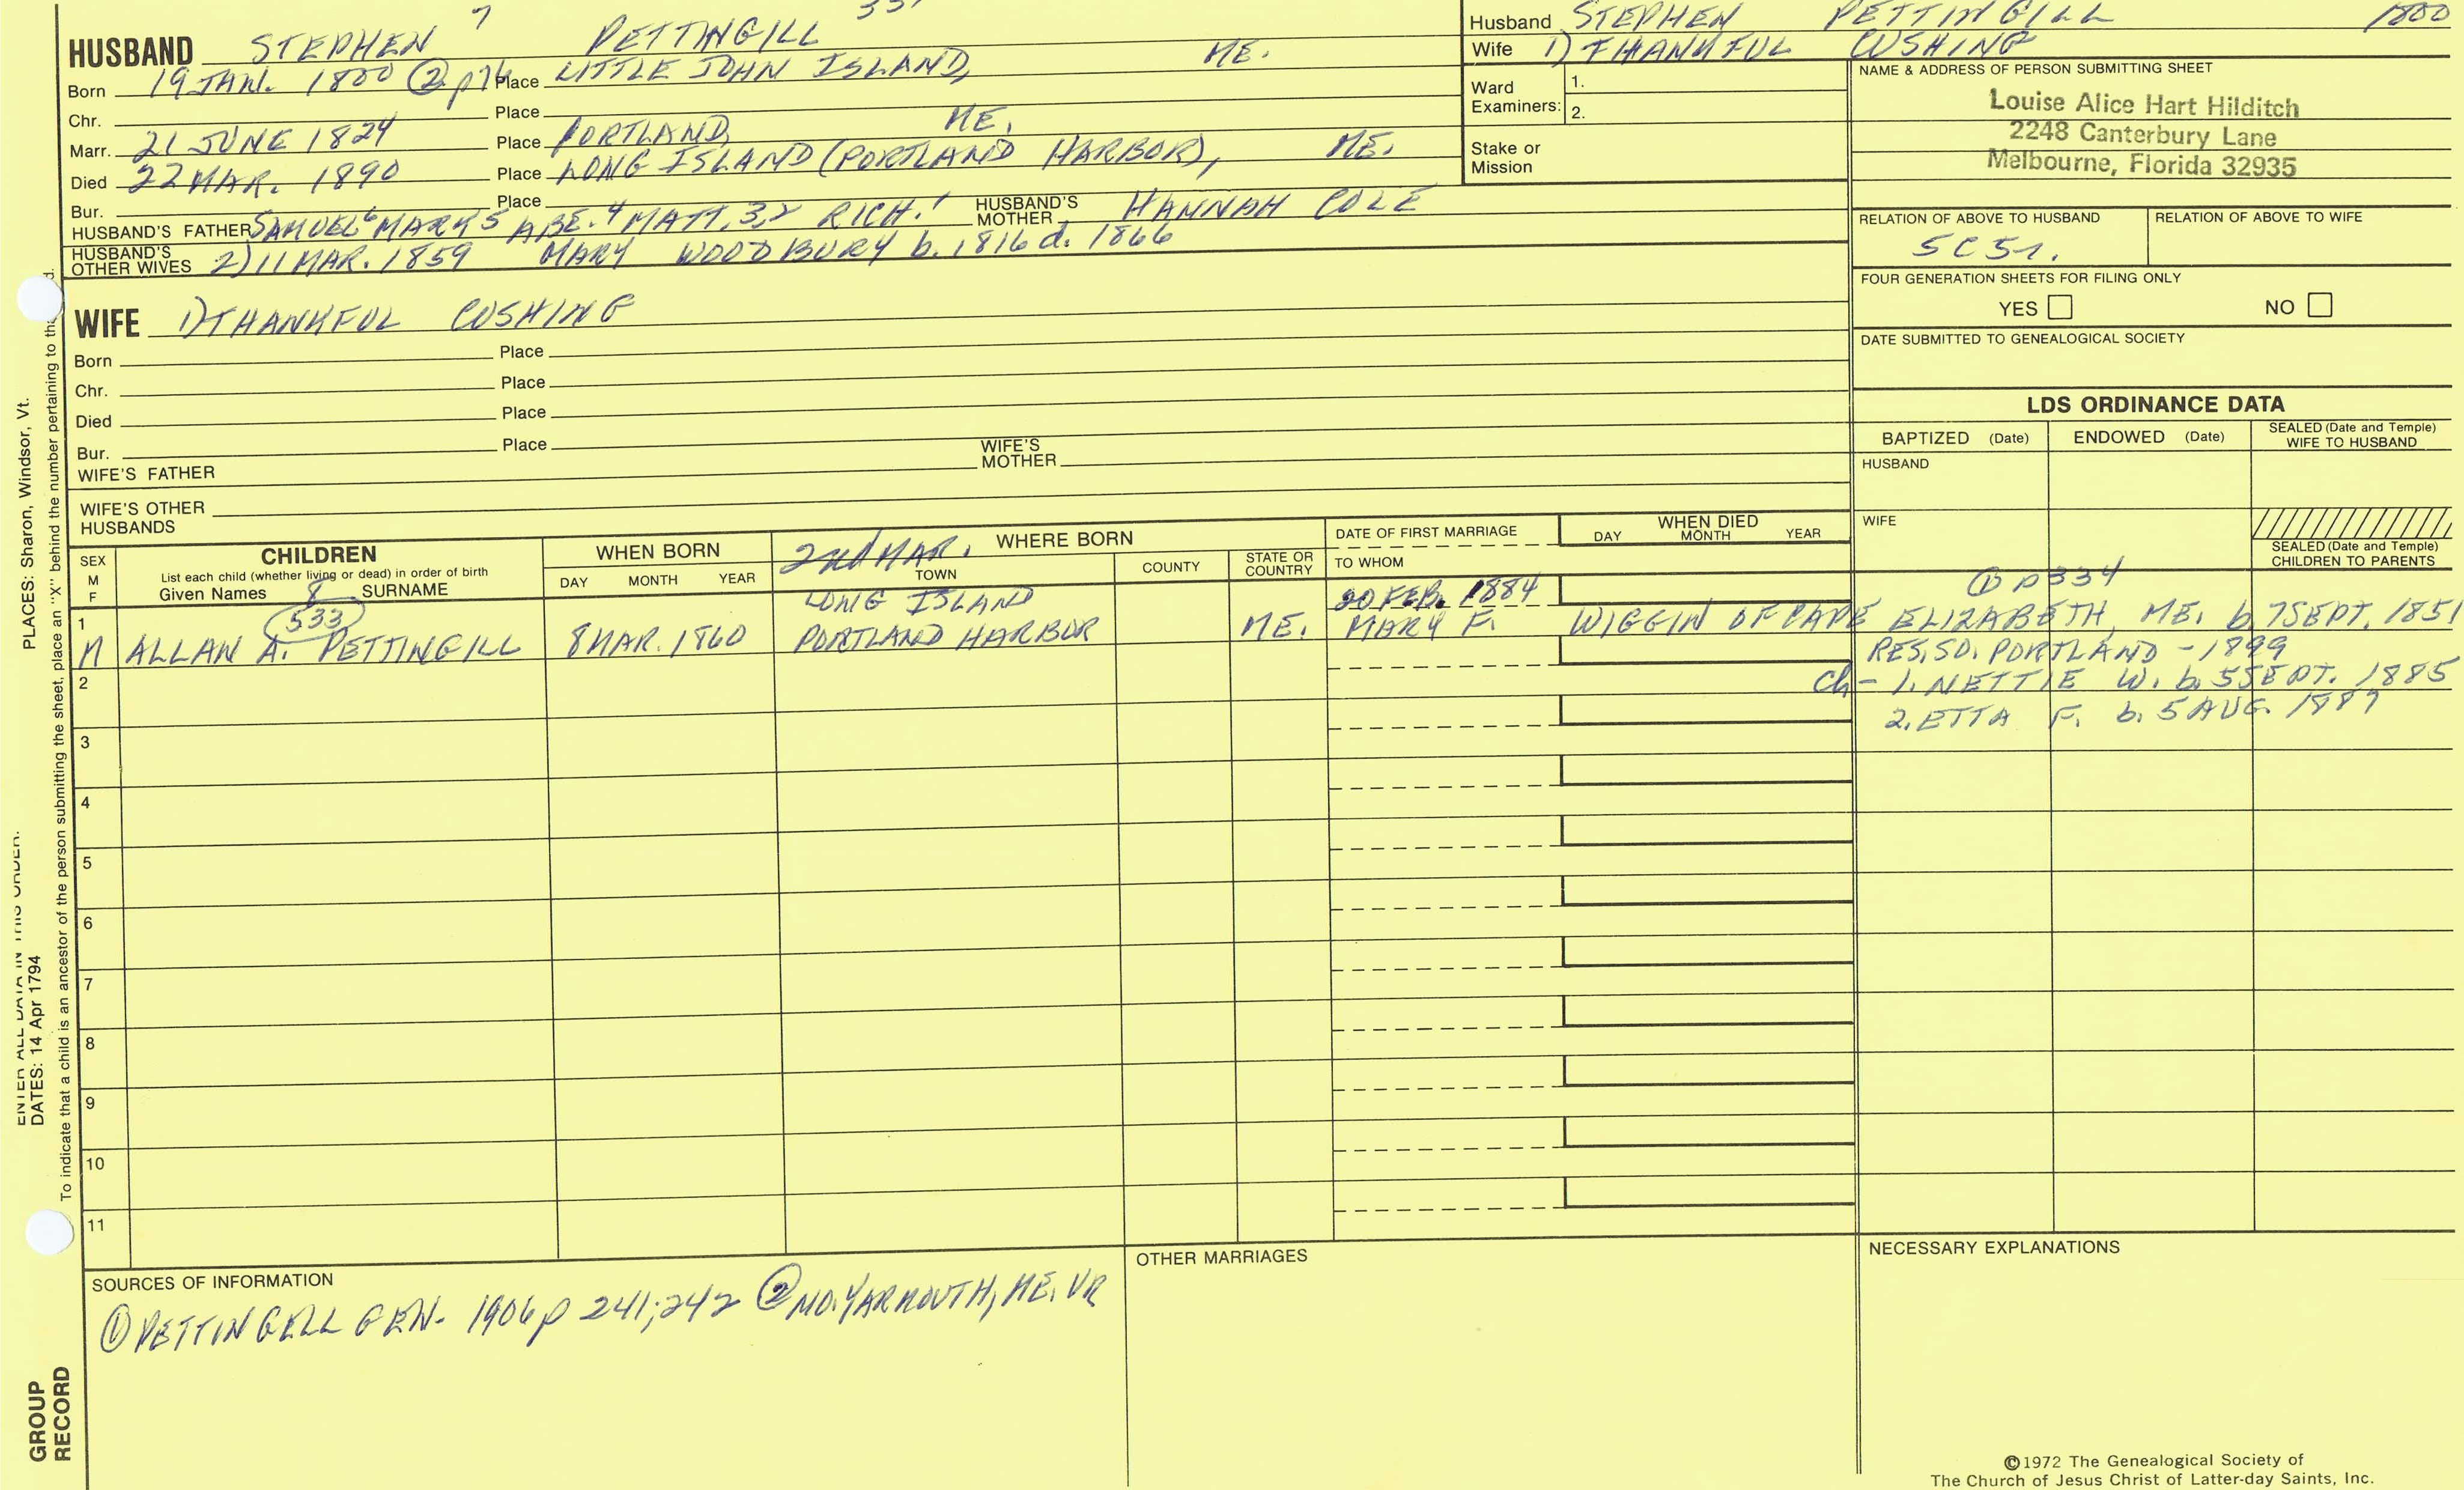 HUSBAND STEPHEN 7 PETTINGILL
Born 19 JAN. 1800 ② p Place LITTLE JOHN ISLAND, ME.
Chr. Place
Marr. 21 JUNE 1824 Place PORTLAND, ME.
Died 22 MAR. 1890 Place LONG ISLAND (PORTLAND HARBOR), ME.
Bur. Place
HUSBAND'S FATHER SAMUEL 6 MARK 5 ABE. 4 MATT. 3,2 RICH. 1 HUSBAND'S MOTHER HANNAH COLE
HUSBAND'S OTHER WIVES 2) 11 MAR. 1859 MARY WOODBURY b. 1816 d. 1866
WIFE 1) THANKFUL CUSHING
Born Place
Chr. Place
Died Place
Bur. Place
WIFE'S FATHER WIFE'S MOTHER
WIFE'S OTHER HUSBANDS
Husband STEPHEN PETTINGILL 1800
Wife 1) THANKFUL CUSHING
Ward Examiners: 1.
2.
Stake or Mission
NAME & ADDRESS OF PERSON SUBMITTING SHEET
Louise Alice Hart Hilditch
2248 Canterbury Lane
Melbourne, Florida 32935
RELATION OF ABOVE TO HUSBAND RELATION OF ABOVE TO WIFE
FOUR GENERATION SHEETS FOR FILING ONLY
YES NO
DATE SUBMITTED TO GENEALOGICAL SOCIETY
LDS ORDINANCE DATA
BAPTIZED (Date) ENDOWED (Date) SEALED (Date and Temple) WIFE TO HUSBAND
HUSBAND
WIFE
SEALED (Date and Temple) CHILDREN TO PARENTS
SEX M F
CHILDREN
List each child (whether living or dead) in order of birth
Given Names 8 SURNAME
WHEN BORN
DAY MONTH YEAR
2nd MAR. WHERE BORN
TOWN COUNTY STATE OR COUNTRY
DATE OF FIRST MARRIAGE
TO WHOM
WHEN DIED
DAY MONTH YEAR
① p 334
533 LONG ISLAND 20 FEB. 1884
1 M ALLAN A. PETTINGILL 8 MAR. 1860 PORTLAND HARBOR ME. MARY F. WIGGIN OF CAPE ELIZABETH, ME. b. 7 SEPT. 1851
RES. SO. PORTLAND - 1899
2 Ch - 1. NETTIE W. b. 5 SEPT. 1885
2. ETTA F. b. 5 AUG. 1887
3
4
5
6
7
8
9
10
11
SOURCES OF INFORMATION
① PETTINGELL GEN. 1906 p 241; 242 ② NO. YARMOUTH, ME. VR
OTHER MARRIAGES
NECESSARY EXPLANATIONS
©1972 The Genealogical Society of
The Church of Jesus Christ of Latter-day Saints, Inc.
PLACES: Sharon, Windsor, Vt.
ENTER ALL DATA IN THIS ORDER:
DATES: 14 Apr 1794
To indicate that a child is an ancestor of the person submitting the sheet, place an "X" behind the number pertaining to tha d.
GROUP
RECORD